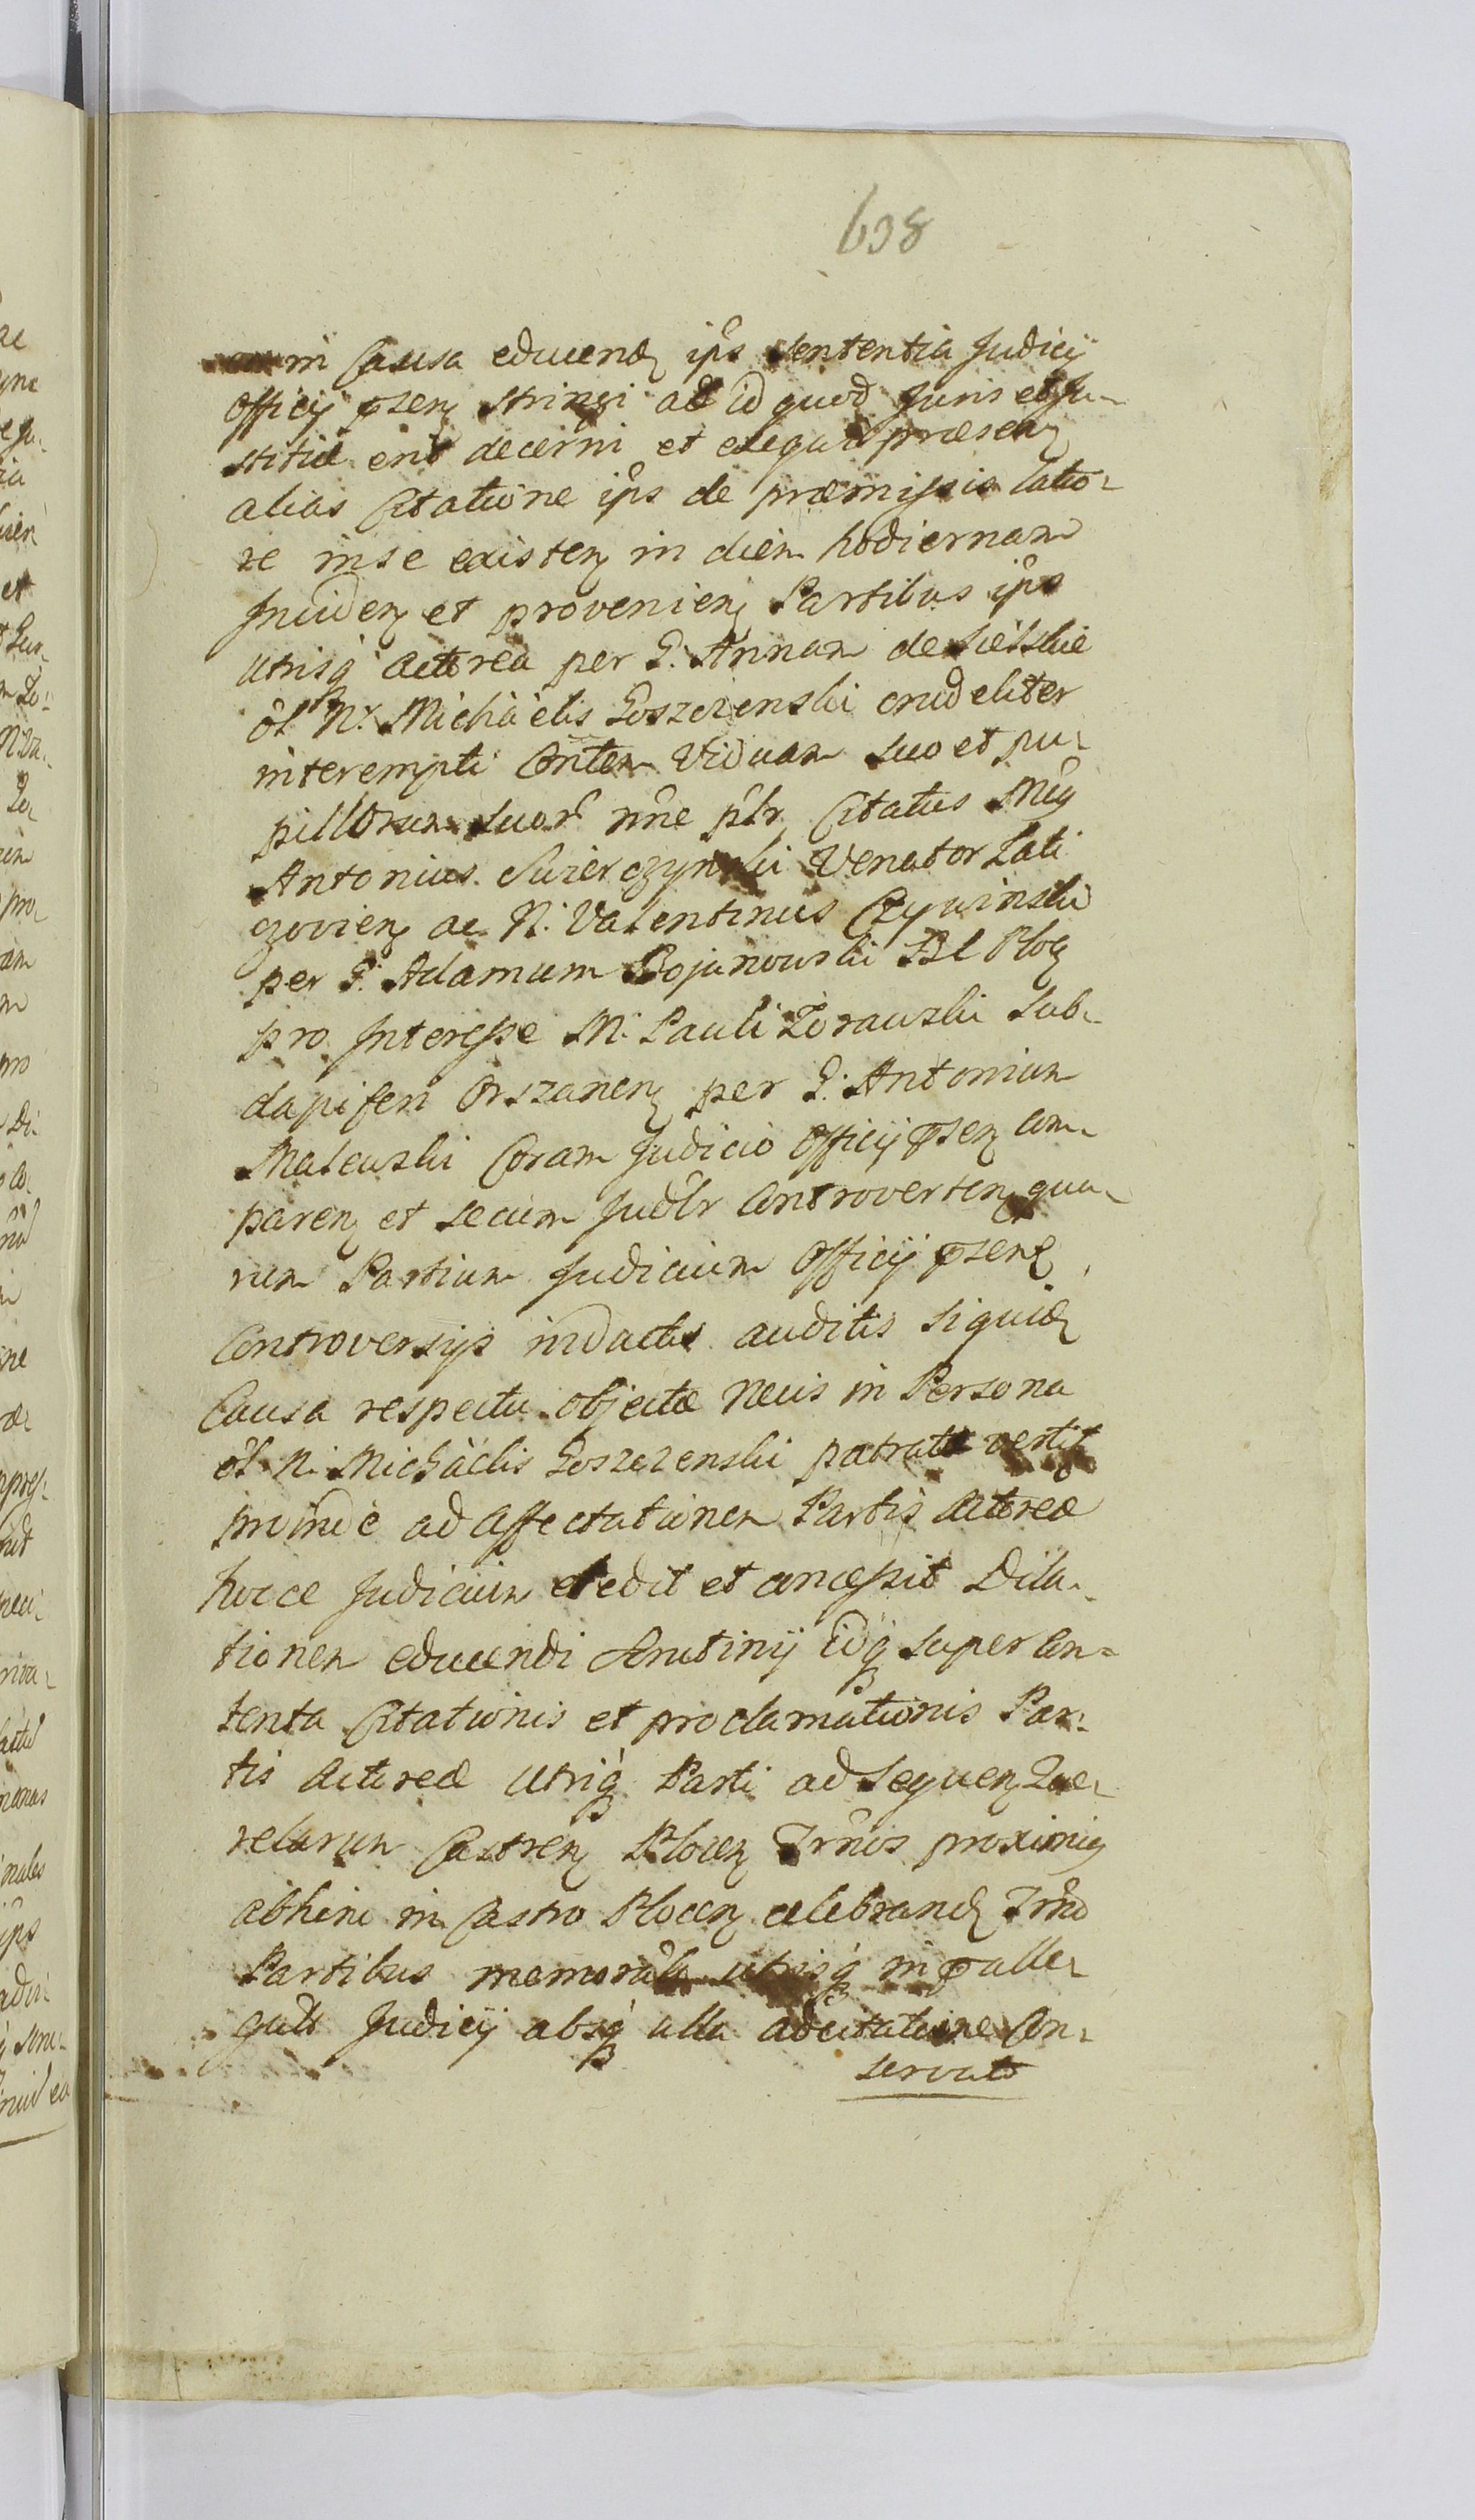 638
in Causa educend ips sententia Judicij
Officij psen stringi ad id quod Juris et Ju-
stitiæ erit decerni et exequi præsen
alias Citatione ips de præmissis latio-
re in se existen in diem hodiernam
Inciden et provenien Partibus ips
utrisq actorea per G. Annam de
ol N. Michäelis Goszczenski crudeliter
interempti Conten Viduam suo et pu-
pillorum suor nne plr Citatus Mg
Antonius Swierczynski Venator Lati
czovien ac N. Valentinus Czywinski
per G. Adamum Bojanowski Bl Ploc
pro Interesse M. Pauli Zorawski Sub-
dapiferi Orszanen per G. Antonium
Malewski Coram Judicio Officij psen com-
paren et secum Judlr Controverten qua-
rum Partium Judicium Officij psens
Controversijs inductis auditis siquid
Causa respectu objectæ Necis in Persona
ol N. Michäelis Goszczenski patratæ vertit
proinde ad affectationem Partis Actoreæ
hocce Judicium dedit et concessit Dila-
tionem educendi Scrutinij idq super Con-
tenta Citationis et proclamationis Par-
tis Actoreæ utriq Parti ad sequen Que-
relarum Castren Plocen Trnos proximis
abhinc in Castro Plocen celebrand Trno
Partibus memoratis utrisq in p alle-
gato Judicij absq ulla adcitatione Con-
servato